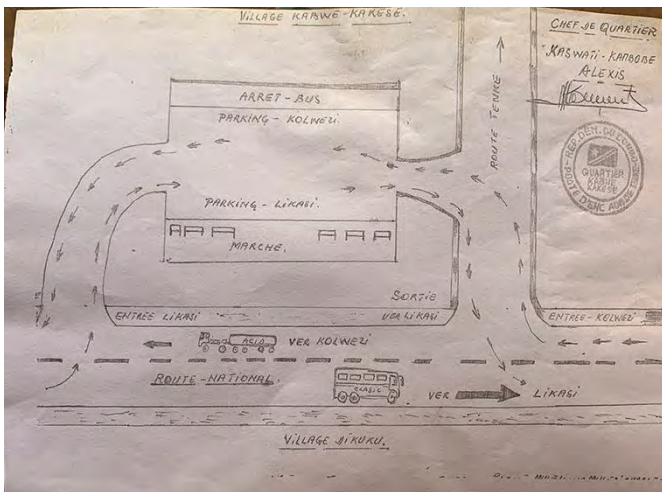 VILLAGE KABWE-KAKESE.
CHEF DE QUARTIER
KASWATI-KAMBOBE
ALEXIS
REP. DEM. DU CONGO
QUARTIER
KABWE
KAKESE
ARRET-BUS
PARKING-KOLWEZI
ROUTE TENKE
PARKING-LIKASI.
MARCHE.
SORTIE
ENTREE LIKASI
VER LIKASI
ENTREE-KOLWEZI
ACID
VER KOLWEZI
ROUTE-NATIONAL.
CLASIC
VER
LIKASI
VILLAGE DIKUKU.